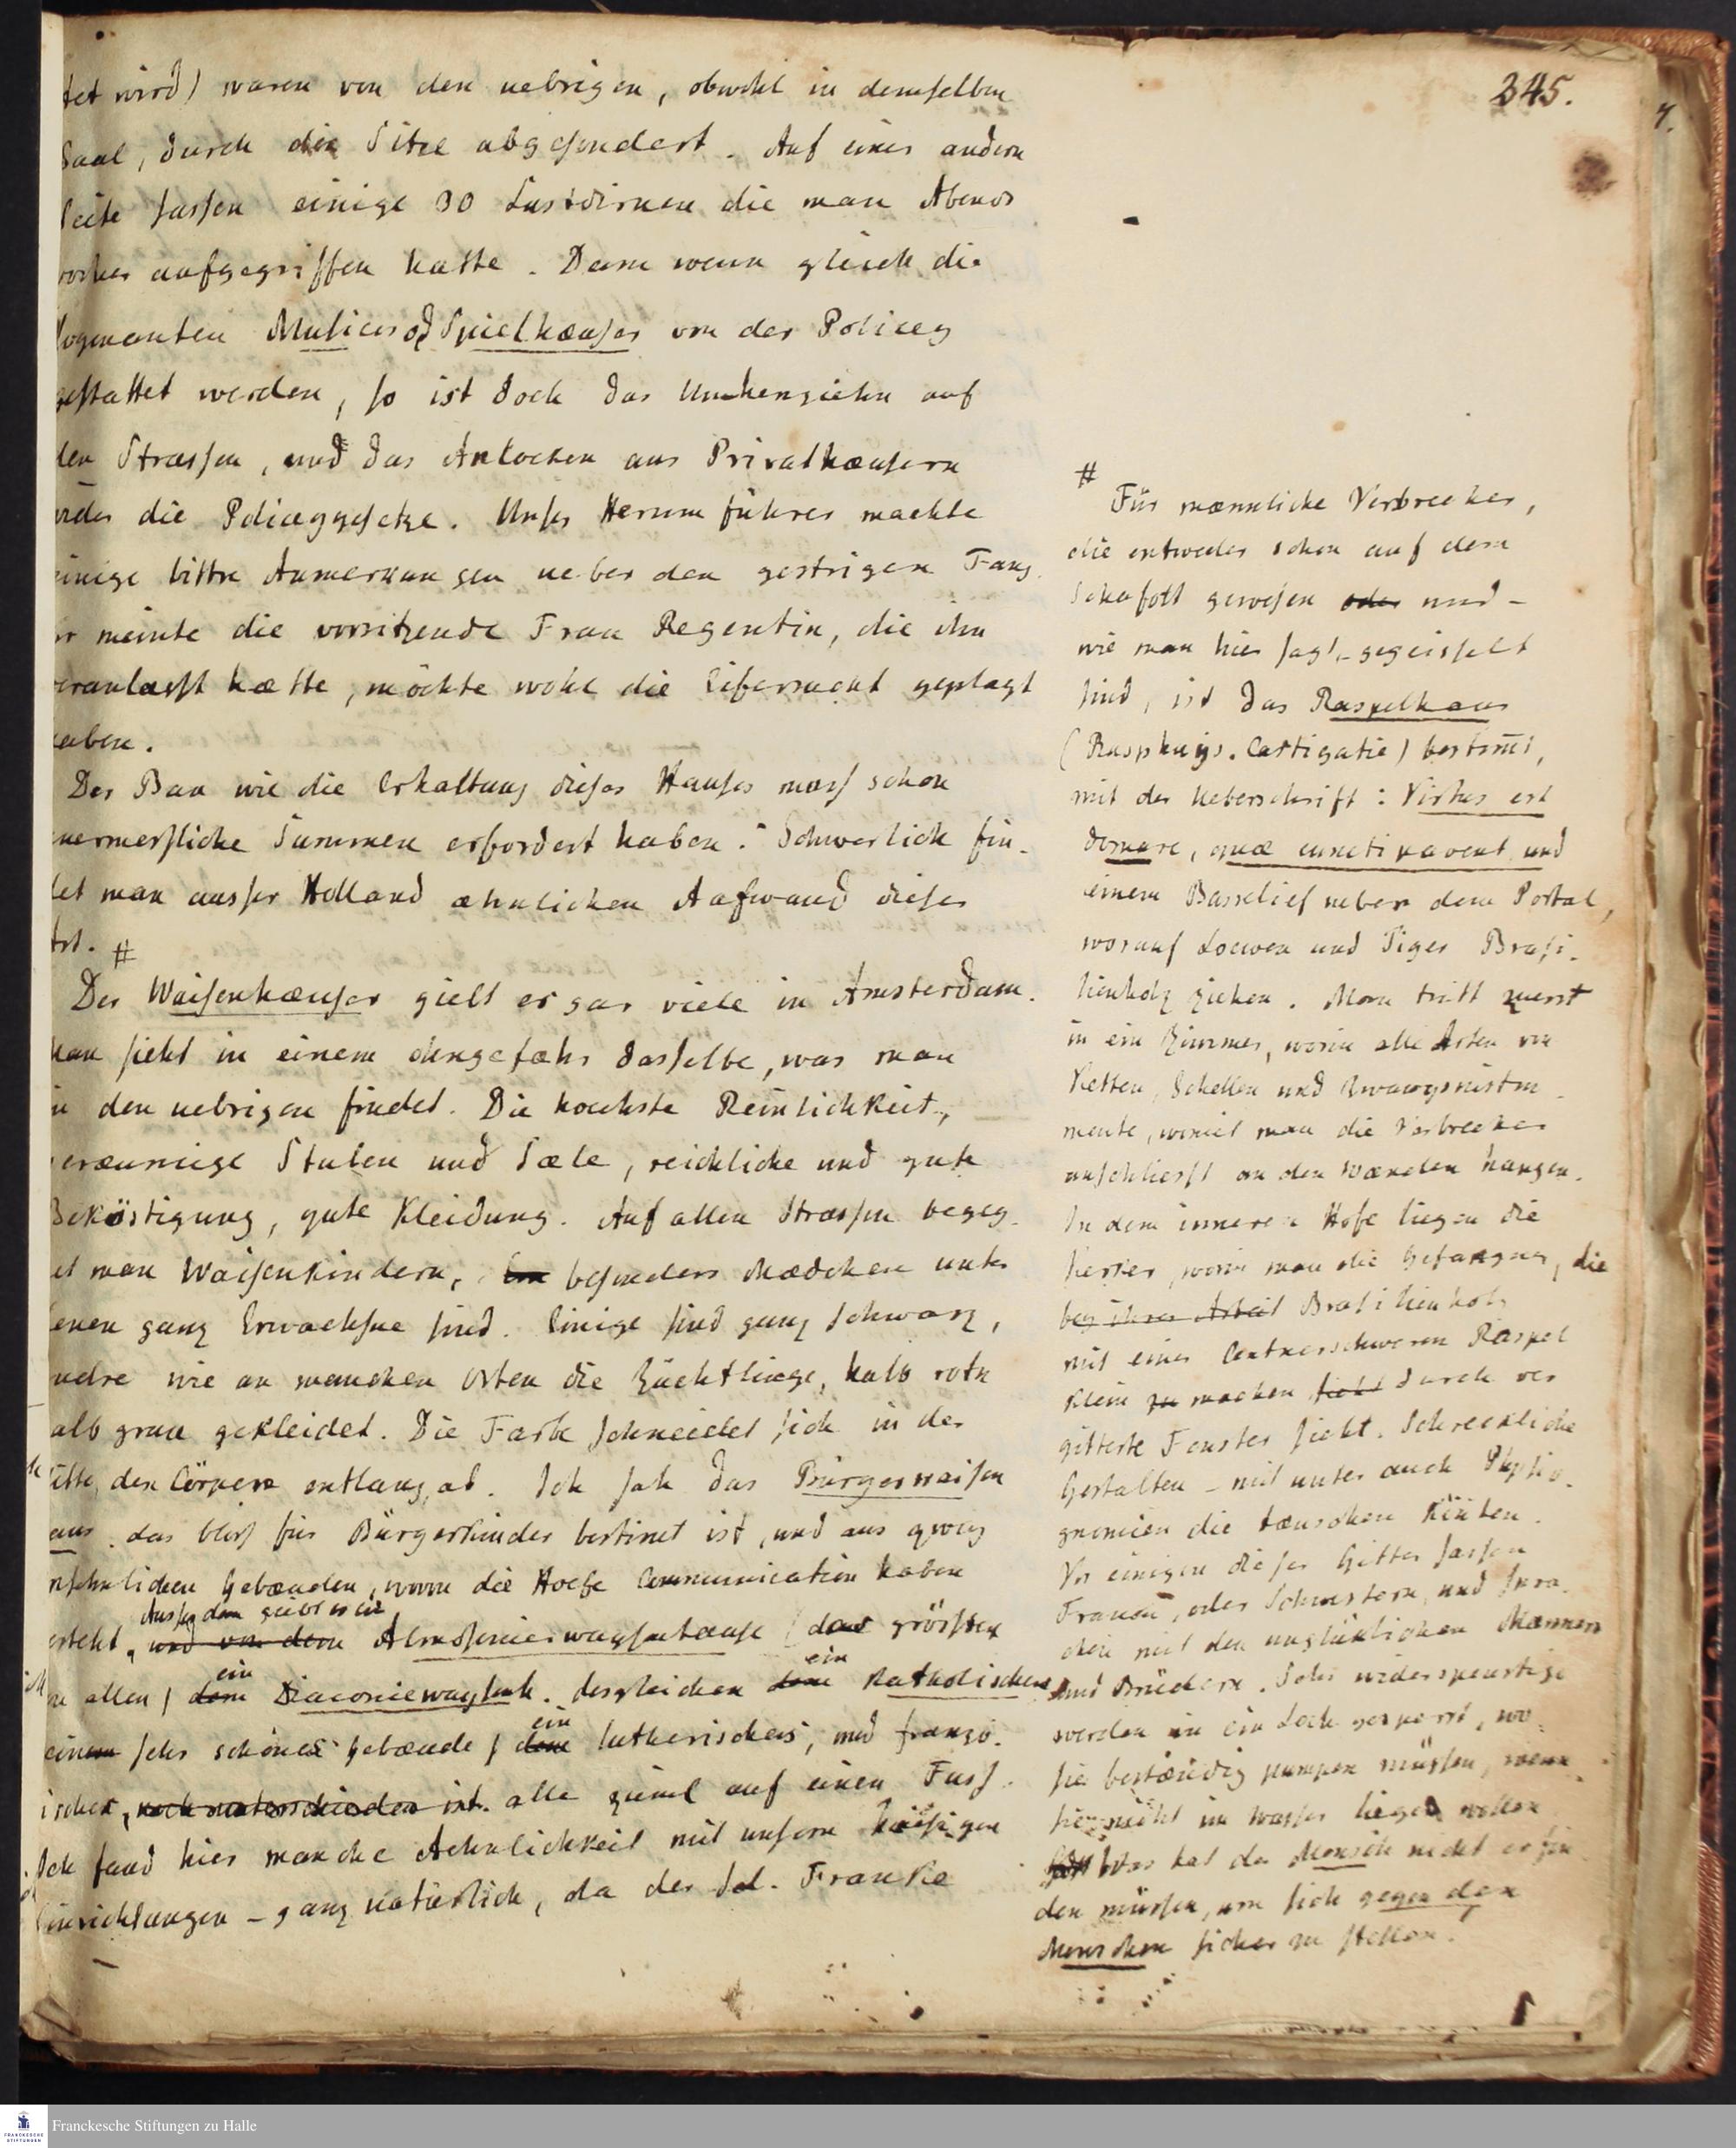 345.
tet wird) waren von den uebrigen, obwohl in demselben
Saal, durch die Sitze abgesondert. Auf einer andern
Seite sassen einige 30 Lustdirnen die man Abends
vorher aufgegriffen hatte. Denn wenn gleich die
sogenanten Musicos od Spielhæuser von der Policey
gestattet werden, so ist doch das Umherziehn auf
den Strassen, und das Anlocken aus Privathæusern
wider die Policeygesetze. Unser Herumführer machte
einige bittre Anmerkungen ueber den gestrigen Fang.
er meinte die vorsitzende Frau Regentin, die ihn
veranlasst hætte, möchte wohl die Eifersucht geplagt
haben.
Der Bau wie die Erhaltung dieses Hauses muss schon
unermessliche Summen erfordert haben. Schwerlich fin-
det man ausser Holland æhnlichen Aufwand dieser
Art. #
Der Waisenhæuser giebt es gar viele in Amsterdam.
Man sieht in einem ohngefæhr dasselbe, was man
in den uebrigen findet. Die hoechste Reinlichkeit,
geræumige Stuben und Sæle, reichliche und gute
Beköstigung, gute Kleidung. Auf allen Strassen begeg-
et man Waisenkindern, besonders Mædchen unter
denen ganz Erwachsne sind. Einige sind ganz schwarz,
andre wie an manchen Orten die Züchtlinge, halb roth
halb grau gekleidet. Die Farbe schneidet sich in der
Mitte, den Cörper entlang, ab. Ich sah das Bürgerwaisen
haus das bloss für Bürgerkinder bestimt ist, und aus zwey
ansehnlichen Gebæuden, wovon die Hoefe Communication haben
Ausserdem giebt es ein
besteht, und von dem Almosenierwaysenhause (das grössten
von allen) dem ein Diaconiewaysenh. desgleichen dem ein Katholisches
einem sehr schönes Gebæude) dem ein lutherisches, und franzö-
sisches, noch unterschieden ist. alle ziemL auf einen Fuss.
Ich fand hier manche Aehnlichkeit mit unsern hiesigen
Einrichtungen - ganz natürlich, da der sel. Franke
#
Für mænnliche Verbrecher,
die entweder schon auf dem
Schafott gewesen oder und -
wie man hier sagt - gegeisselt
sind, ist das Raspelhaus
(Rasphuijs. Castigatie) bestimt,
mit der Ueberschrift: Virtus est
domare, quæ cuncti pavent und
einem Basrelief ueber dem Portal,
worauf Loewen und Tiger Brasi-
lienholz ziehen. Man tritt zuerst
in ein Zimmer, worin alle Arten von
Ketten, Schellen und Zwangsinstru-
mente, womit man die Verbrecher
anschliesst an den Wænden hangen.
In dem inneren Hofe liegen die
Kerker, worin man die Gefangnen, die
bey ihrer Arbeit Brasilienholz
mit einer Centnerschweren Raspel
klein zu machen sieht durch ver
gitterte Fenster sieht. Schreckliche
Gestalten - mit unter auch Physio-
gnomien die tæuschen könten.
Vor einigen dieser Gitter sassen
Frauen, oder Schwestern, und spra-
chen mit den unglüklichen Mænnern
und Brüdern. Sehr widerspenstige
werden in ein Loch gesperrt, wo
sie bestændig pumpen müssen, wenn
sie nicht im Wasser liegen wollen
Was hat der Mensch nicht erfin
den müssen, um sich gegen den
Menschen sicher zu stellen.
Franckesche Stiftungen zu Halle